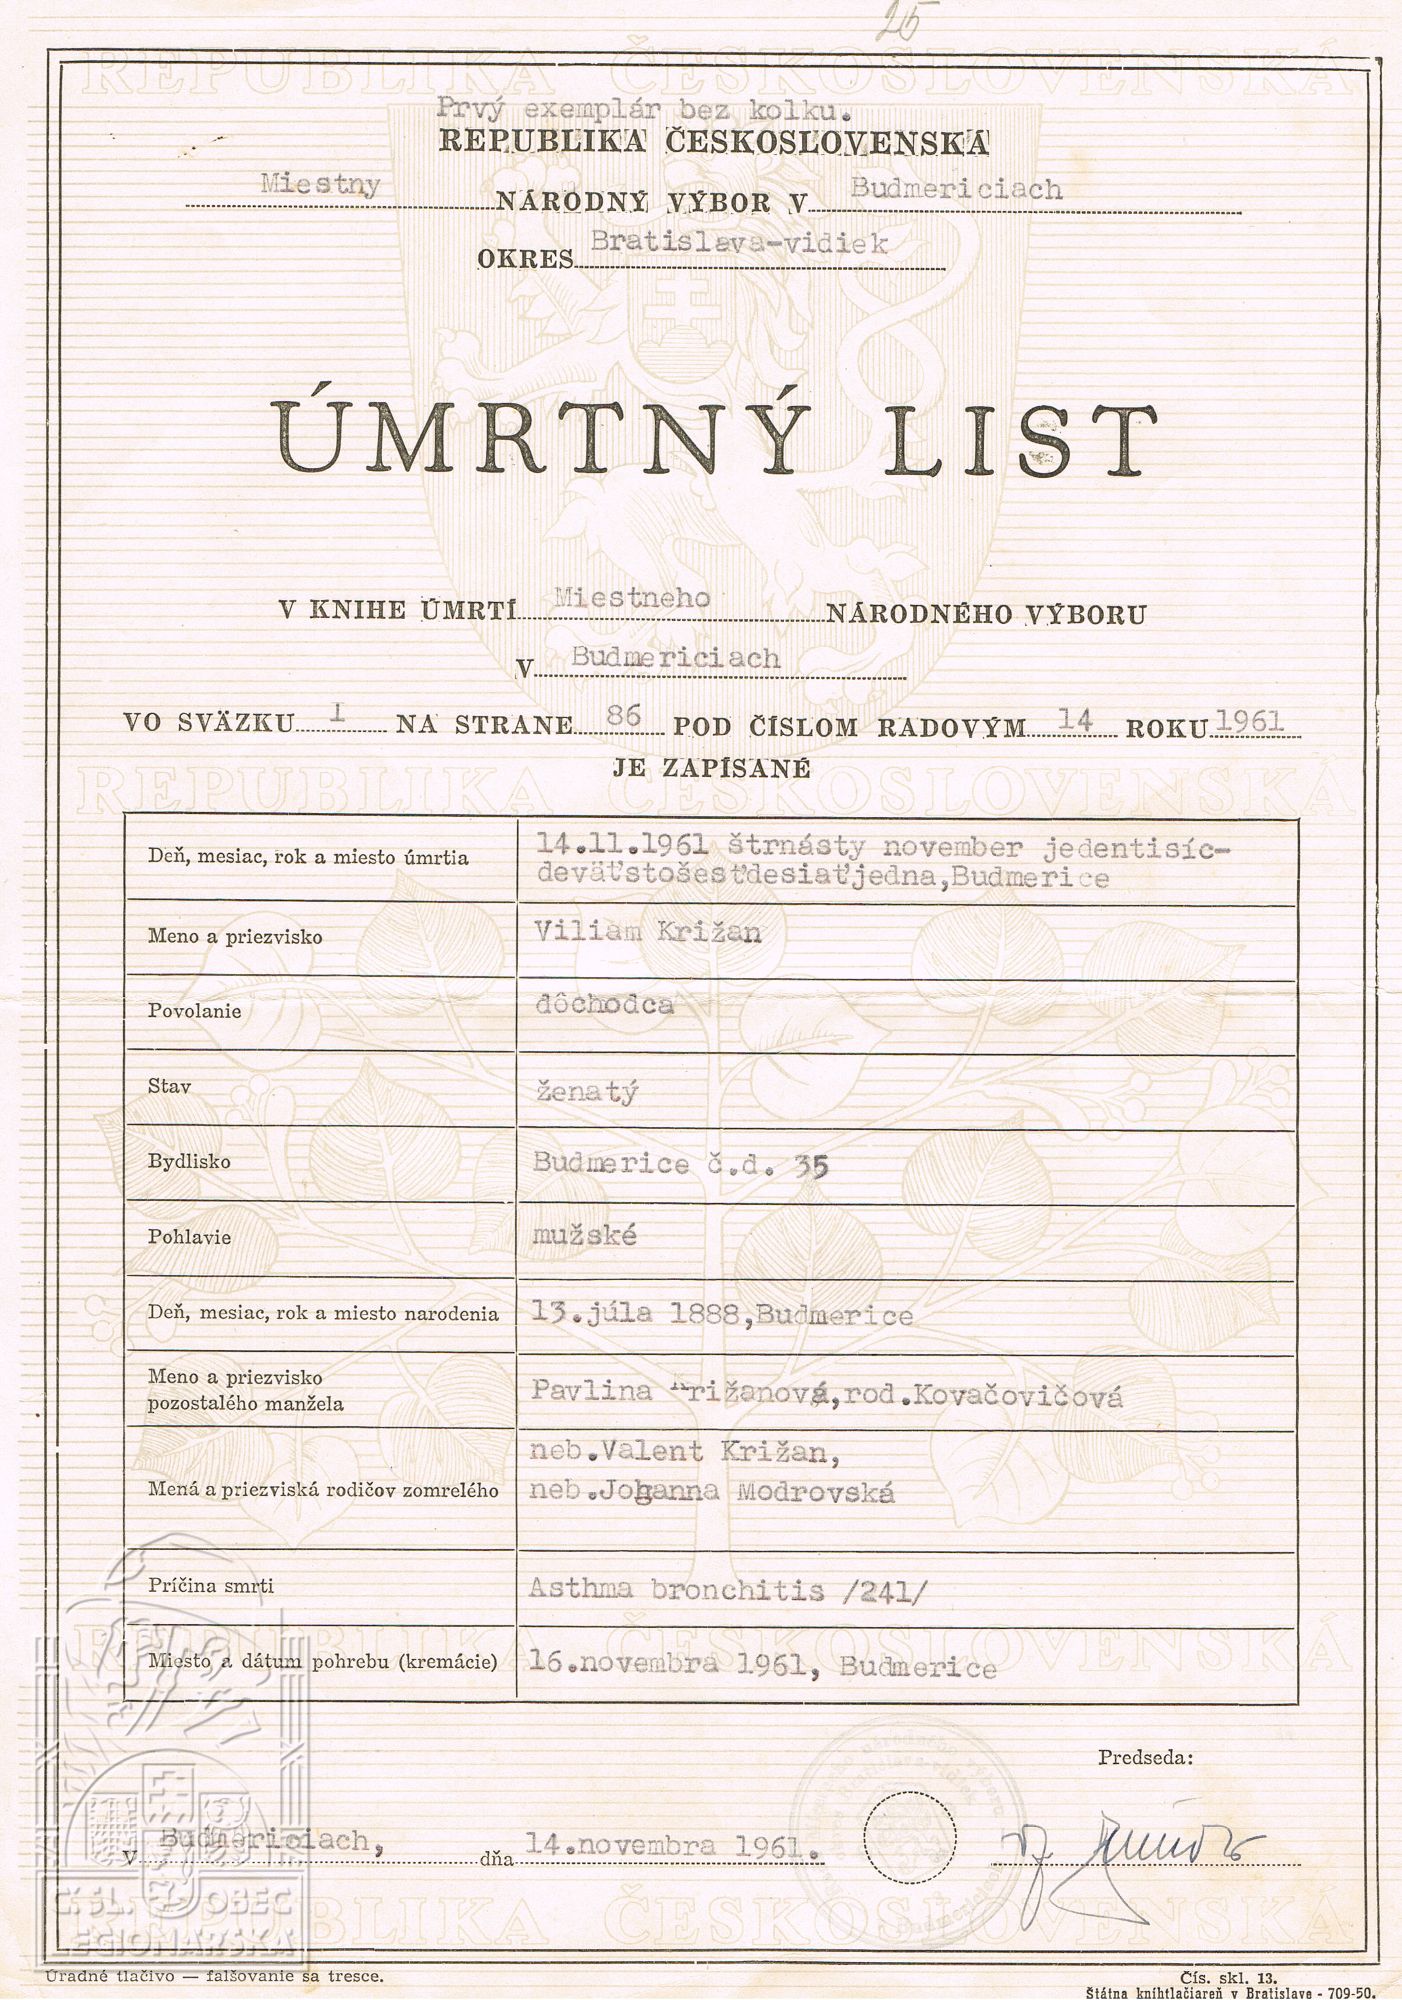 25
REPUBLIKA ČESKOSLOVENSKÁ
Prvý exemplár bez kolku.
REPUBLIKA ČESKOSLOVENSKÁ
Miestny NÁRODNÝ VÝBOR V Budmericiach
OKRES Bratislava-vidiek
ÚMRTNÝ LIST
V KNIHE ÚMRTÍ Miestneho NÁRODNÉHO VÝBORU
V Budmericiach
VO SVÄZKU 1 NA STRANE 86 POD ČÍSLOM RADOVÝM 14 ROKU 1961
JE ZAPÍSANÉ
REPUBLIKA ČESKOSLOVENSKÁ
Deň, mesiac, rok a miesto úmrtia 14.11.1961 štrnásty november jedentisíc-
deväťstošesťdesiaťjedna,Budmerice
Meno a priezvisko Viliam Križan
Povolanie dôchodca
Stav ženatý
Bydlisko Budmerice č.d. 35
Pohlavie mužské
Deň, mesiac, rok a miesto narodenia 13.júla 1888,Budmerice
Meno a priezvisko
pozostalého manžela Pavlina Križanová,rod.Kovačovičová
neb.Valent Križan,
Mená a priezviská rodičov zomrelého neb.Johanna Modrovská
Príčina smrti Asthma bronchitis /241/
REPUBLIKA ČESKOSLOVENSKÁ
Miesto a dátum pohrebu (kremácie) 16.novembra 1961, Budmerice
Predseda:
V Budmericiach, dňa 14.novembra 1961.
Č. SL. OBEC
LEGIONÁŘSKÁ
REPUBLIKA ČESKOSLOVENSKÁ
Úradné tlačivo — falšovanie sa tresce.
Čís. skl. 13.
Štátna kníhtlačiareň v Bratislave - 709-50.